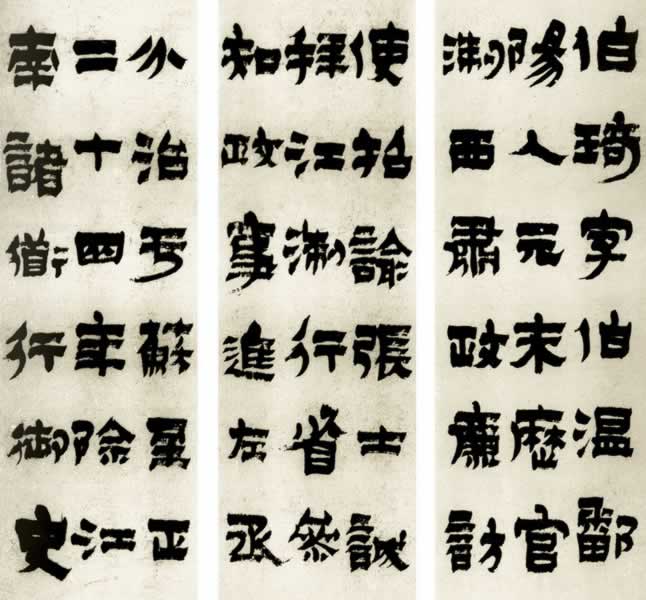 伯琦字伯温鄱
陽人元末歷官
浙西肅政廉訪
使招諭張士誠
拜江浙行省參
知政事進左丞
分治于蘇至正
二十四年除江
南諸道行御史